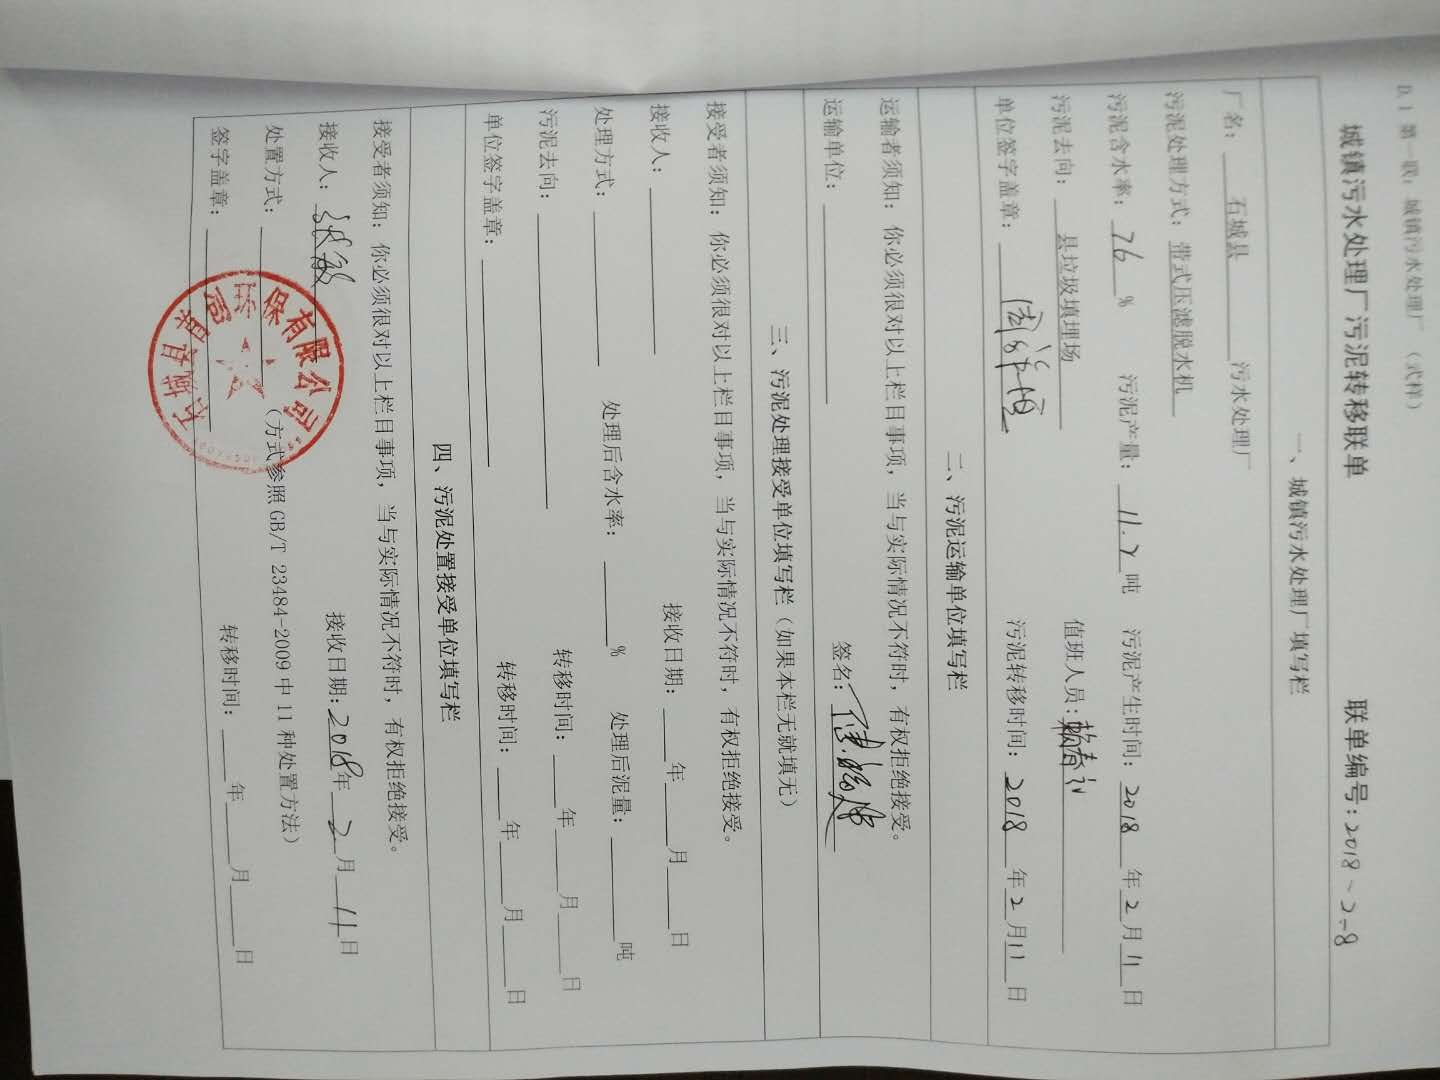 D.1 第一联：城镇污水处理厂（式样）
城镇污水处理厂污泥转移联单 联单编号：2018-2-8
一、城镇污水处理厂填写栏
厂名： 石城县 污水处理厂
污泥处理方式：带式压滤脱水机
污泥含水率：76 % 污泥产量：11.2 吨 污泥产生时间：2018 年 2 月 11 日
污泥去向：县垃圾填埋场 值班人员：
单位签字盖章： 污泥转移时间：2018 年 2 月 11 日
二、污泥运输单位填写栏
运输者须知：你必须很对以上栏目事项，当与实际情况不符时，有权拒绝接受。
运输单位： 签名：
三、污泥处理接受单位填写栏（如果本栏无就填无）
接受者须知：你必须很对以上栏目事项，当与实际情况不符时，有权拒绝接受。
接收人： 接收日期： 年 月 日
处理方式： 处理后含水率： % 处理后泥量： 吨
污泥去向： 转移时间： 年 月 日
单位签字盖章： 转移时间： 年 月 日
四、污泥处置接受单位填写栏
接受者须知：你必须很对以上栏目事项，当与实际情况不符时，有权拒绝接受。
接收人：张敏 接收日期：2018年 2 月 11 日
处置方式： （方式参照 GB/T 23484-2009 中 11 种处置方法）
签字盖章： 转移时间： 年 月 日
石城县首创环保有限公司